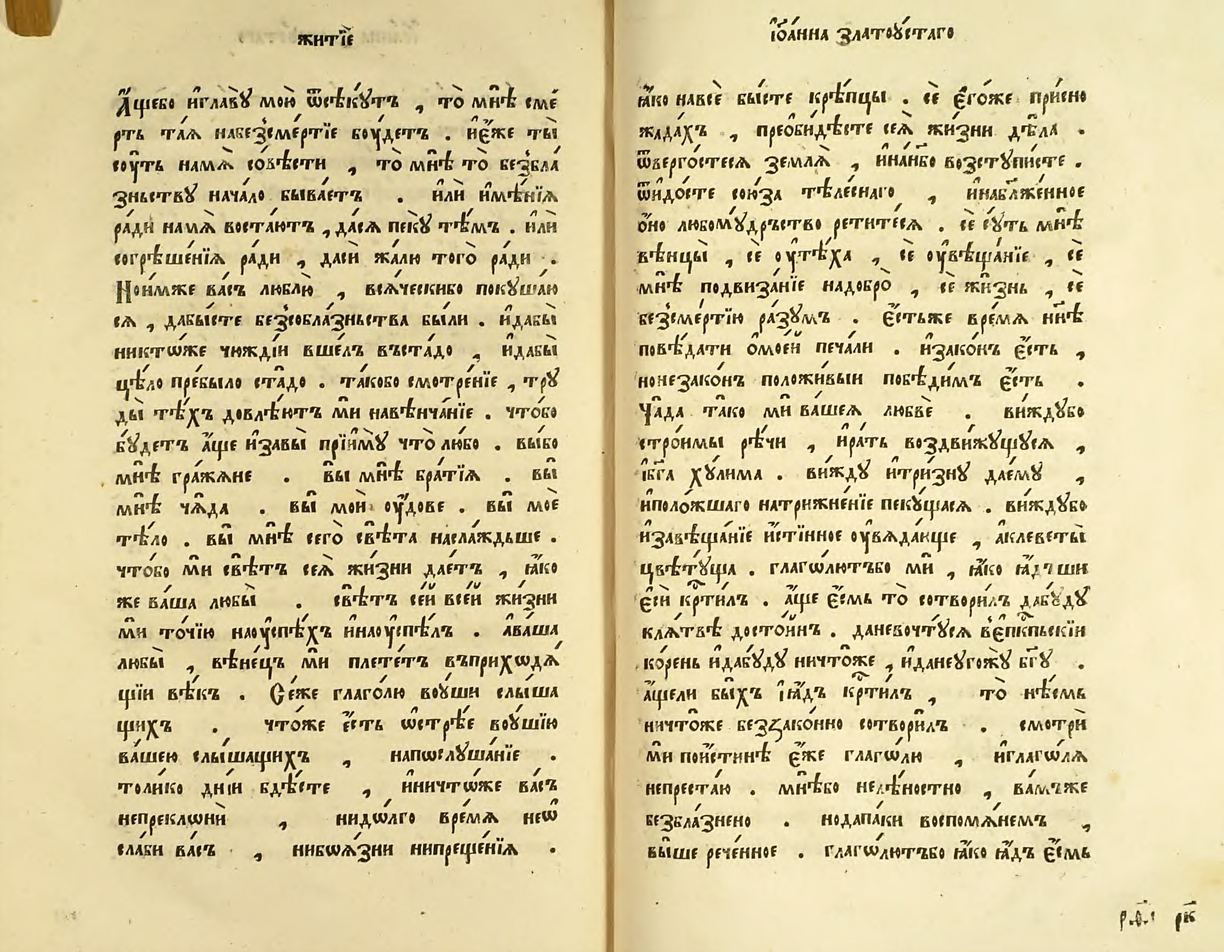 житїе
А҆щебо иглавꙋ мою ѿсѣкꙋтъ , то мнѣ сме
рть таѧ набез̾смертїе боудетъ . иєже ты
соуть намѧ совѣсти , то мнѣ то безбла
зньствꙋ начало бываетъ . или имѣнїѧ
ради намѧ востаютъ , дасѧ пекꙋ тѣмъ . или
согрѣшенїѧ ради , даси жалю того ради .
Ноимже васъ люблю , всѧческибо покꙋшаю
сѧ , дабысте без̾соблаꙁньства были . идабы
никтѡже чюждїи вшелъ въстадо , идабы
цѣло пребыло стадо . такобо смотренїе , трꙋ
ды тѣхъ довлѣютъ ми навѣнчанїе . чтобо
бꙋдетъ аще изавы прїимꙋ что любо . выбо
мнѣ гражѧне . вы мнѣ братїѧ . вы
мнѣ чѧда . вы мои оудове . вы мое
тѣло . вы мнѣ сего свѣта наслаждьше .
чтобо ми свѣтъ сеѧ жизни даетъ , ꙗко
же ваша любы . свѣтъ сей всей жизни
ми точїю наоуспѣхъ инаоуспѣлъ . аваша
любы , вѣнецъ ми плететъ въприходѧ
щїи вѣкъ . Сеже глаголю воуши слыша
щихъ . чтоже есть ѡстрѣе воушїю
вашею слышащихъ , напослꙋшанїе .
толико днїи бдѣсте , иничтѡже васъ
непреклѡни , нидѡлго времѧ неѡ
слаби васъ , нибѡѧзни нипрещенїѧ .
їѡанна златоꙋстаго
ꙗко навсе бысте крѣпцы . се егоже присно
жадахъ , преобидѣсте сеѧ жизни дѣла .
ѿвергостесѧ землѧ , инанбо возстꙋписте .
ѿидосте союза тѣлеснаго , инаблаженное
оно любомꙋдръство ретитесѧ . се сꙋть мнѣ
вѣнцы , се оутѣха , се оувѣщанїе , се
мнѣ подвизанїе надобро , се жизнь , се
безсмертїю разꙋмъ . естьже времѧ ннѣ
повѣдати омоей печали . изаконъ есть ,
нонезаконъ положивыи победимъ есть .
Чада тако ми вашеѧ любве . виждꙋбо
строимы рѣчи , ирать воздвижꙋщꙋсѧ ,
їбга хꙋлима . виждꙋ итризнꙋ даемꙋ ,
иположшаго натрижненїе пекꙋщасѧ . виждꙋбо
изавѣщанїе истїнное оувѧдающе , аклеветы
цвѣтꙋща . глагѡлютъбо ми , ꙗко ꙗдъши
еси кртилъ . аще есмь то сотворилъ дабꙋдꙋ
клѧтвѣ достоинъ . даневочтꙋсѧ вепкпьскїи
корень идабꙋдꙋ ничтоже , иданеугожꙋ бгꙋ .
ащели быхъ їꙗдъ кртилъ , то нѣсмь
ничтоже беззаконно сотворилъ . смотри
ми поистинѣ еже глаголю , иглагѡлѧ
непрестаю . мнѣбо нелѣностно , вамъже
безблазнено . нодапаки воспомѧнемъ ,
выше реченное . глагѡлютъбо ꙗко ꙗдъ есмь
рк